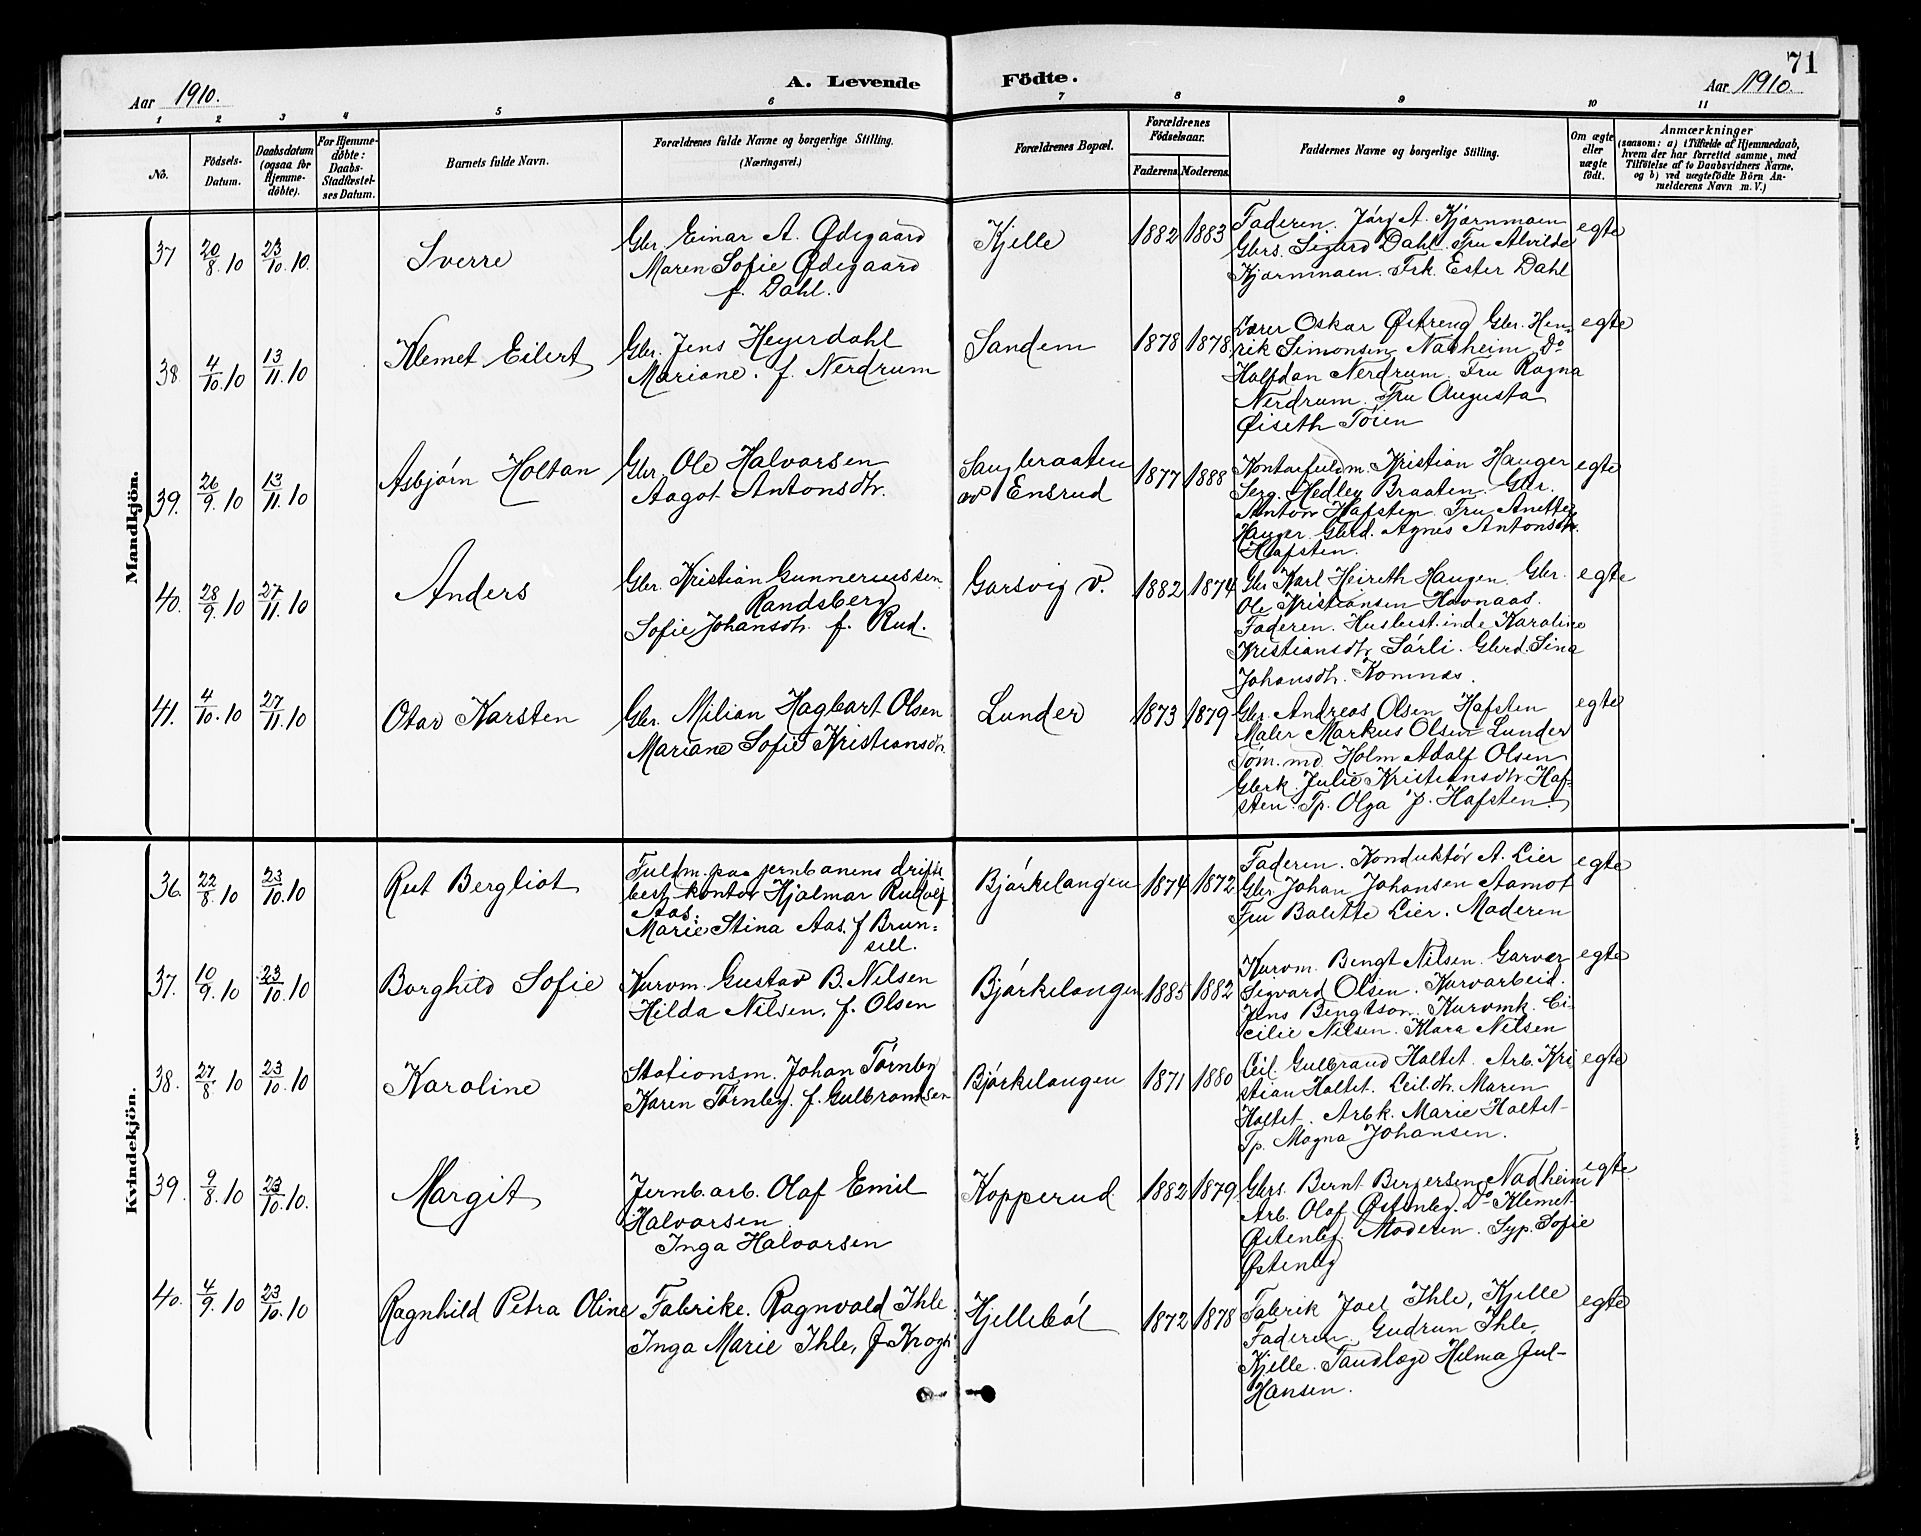 71
Aar 1910.
A. Levende Födte.
Aar 1910.
1 2 3 4 5 6 7 8 9 10 11
No.
Födsels-Datum.
Daabsdatum (ogsaa for Hjemme-döbte).
For Hjemme-döbte: Daabs-Stadfæstel-ses Datum.
Barnets fulde Navn.
Forældrenes fulde Navne og borgerlige Stilling.
(Næringsvei.)
Forældrenes Bopæl.
Forældrenes Födselsaar.
Faderens. Moderens.
Faddernes Navne og borgerlige Stilling.
Om ægte eller uægte födt.
Anmærkninger
(saasom: a) i Tilfælde af Hjemmedaab,
hvem der har forrettet samme, med
Tilföielse af to Daabsvidners Navne,
og b) ved uægtefödte Börn An-
melderens Navn m. V.)
Mandkjön.
37 20/8.10 23/10.10. Sverre
Gbr. Einar A. Ødegaard
Maren Sofie Ødegaard
f. Dahl.
Kjelle 1882 1883
Faderen. A. Kjærnmoen
Gbrs. Sigurd Dahl. Fru Alvilde
Kjærnmoen. Frk. Ester Dahl
egte
38. 4/10.10 13/11.10 Klemet Eilert
Gbr. Jens Heyerdahl
Mariane. f. Nerdrum
Sandem 1878 1878
Lærer Oskar Østreng Gbr. Hen-
rik Simonsen Nadheim Do
Halfdan Nerdrum. Fru Ragna
Nerdrum. Fru Augusta
Øiseth Töien
egte
39. 26/9.10 13/11.10 Asbjørn Holtan
Gbr. Ole Halvorsen
Aagot Antonsdtr.
Saugbraaten
av Ensrud
1877 1888
Kontorfuldm. Kristian Hauger
Serg. Hedley Braaten. Gbr.
Anton Hafsten. Fru Anette
Hauger. Gbrd. Agnes Antonsdtr.
Hafsten.
egte
40. 28/9.10 27/11.10 Anders
Gbr. Kristian Gunneriussen
Randsberg
Sofie Johansdtr. f. Rud.
Garsvig v. 1882 1874
Gbr. Karl Heireth Haugen. Gbr.
Ole Kristiansen Hovnaas.
Faderen. Husbest.inde Karoline
Kristiansdtr Sörli. Gbrd. Sina
Johansdtr. Komnæs.
egte
41. 4/10.10 27/11.10 Otar Karsten
Gbr. Milian Hagbart Olsen
Mariane Sofie Kristiansdtr.
Lunder 1873 1879
Gbr. Andreas Olsen Hafsten
Maler Markus Olsen Lunder
Töm.md. Holm Adolf Olsen
Gbrk. Julie Kristiansdtr. Haf-
sten. Tp. Olga J. Hafsten.
egte
Kvindekjön.
36. 22/8.10 23/10.10 Rut Bergliot
Fuldm. paa jernbanens drifts
best. kontor Hjalmar Rudolf
Aas.
Marie Stina Aas. f. Brun-
sell.
Bjørkelangen 1874 1872
Faderen. Konduktør A. Lier
Gbr. Johan Johansen Aamot
Fru Balette Lier. Moderen
egte
37. 10/9.10 23/10.10 Borghild Sofie
Kurvm. Gustav B. Nilsen
Hilda Nilsen, f. Olsen
Bjørkelangen 1885 1882
Kurvm. Bengt Nilsen. Garver
Sigvard Olsen. Kurvarbeid.
Jens Bengtson. Kurvmk. Ci-
cilie Nilsen. Klara Nilsen
egte
38. 27/8.10 23/10.10 Karoline
Stationsm. Johan Tørnby
Karen Tørnby. f. Gulbrandsen
Bjørkelangen 1871 1880
Leil. Gulbrand Holtet. Arb. Kri-
stian Holtet. Leil.dtr. Maren
Holtet. Arbk. Marie Holtet
Tp. Magna Johansen.
egte
39. 9/8.10 23/10.10. Margit
Jernb.arb. Olaf Emil
Halvorsen
Inga Halvorsen
Kopperud 1882 1879
Gbrs. Bernt Bergersen Nadheim
Arb. Olaf Østenby. Do Klemet
Østenby. Moderen. Syp. Sofie
Østenby
egte.
40. 4/9.10 23/10.10 Ragnhild Petra Oline
Fabrike. Ragnvald Ihle
Inga Marie Ihle, f. Krogh
Kjellebøl 1872 1878
Fabrik Joel Ihle, Kjelle
Faderen. Gudrun Ihle,
Kjelle. Tandlæge Helma Jul-
Hansen.
egte